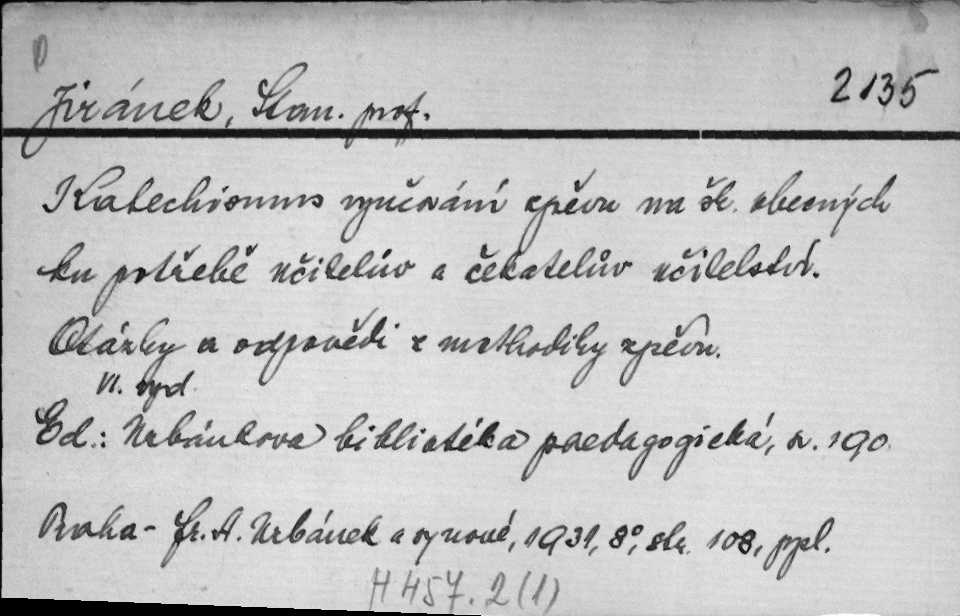 D
2135
Jiránek, Stan. prof.
Katechismus vyučování zpěvu na šk. obecných
ku potřebě učitelův a čekatelův učitelství.
Otázky a odpovědi z methodiky zpěvu.
VI. vyd.
Ed.: Urbánkova bibliotéka paedagogická, sv. 190.
Praha - Fr. A. Urbánek a synové, 1931, 8°, str. 108, ppl.
H 457. 2 (1)